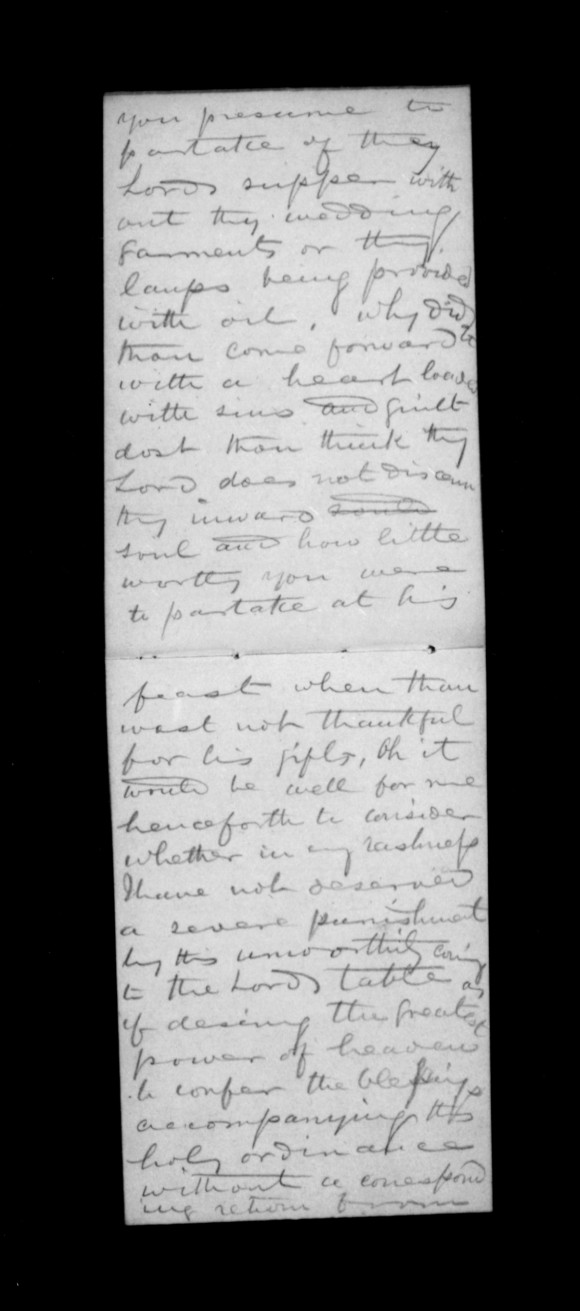 you presume to
partake of they
Lords supper with
out thy wedding
garments or thy
lamps being provided
with oil, why did
thou come forward to
with a heart loaded
with sins and guilt
dost thou think thy
Lord does not discern
thy inward soul
soul and how little
worthy you were
to partake at his
feast when thou
wast not thankful
for his gifts, Oh it
would be well for me
henceforth to consider
whether in my rashness
I have not deserved
a severe punishment
by this unworthily coming
to the Lords table as
if desiring the greatest
power of heaven
to confer the blessings
accompanying this
holy ordinance
without a correspond
ing return from